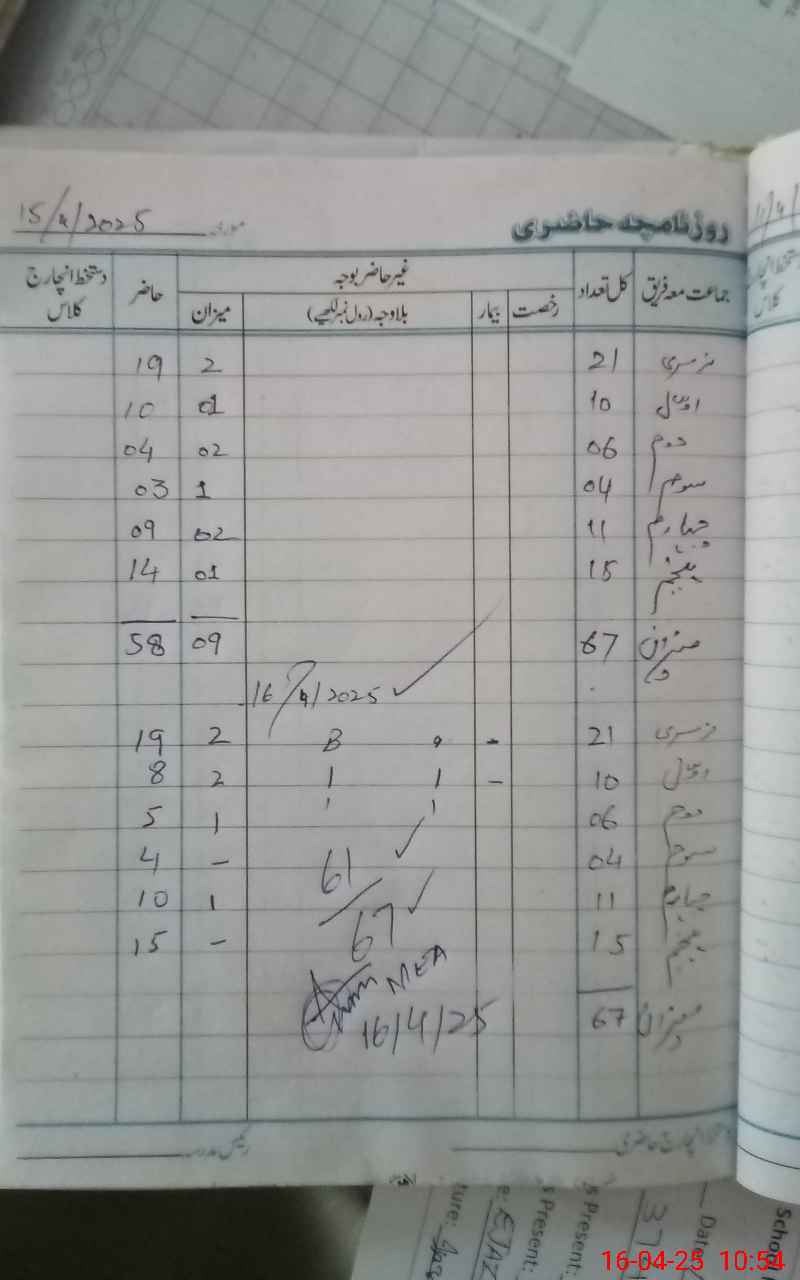 روزنامچہ حاضری مورخہ 15/4/2025
جماعت معہ فریق کل تعداد غیر حاضر بوجہ حاضر دستخط انچارج کلاس
رخصت بیمار بلاوجہ (رول نمبر لکھیے) میزان
نرسری 21 2 19
اول 10 01 10
دوم 06 02 04
سوم 04 1 03
چہارم 11 02 09
پنجم 15 01 14
میزان 67 09 58
16/4/2025
نرسری 21 - B 2 19
اول 10 - 1 1 2 8
دوم 06 1 1 1 5
سوم 04 - 4
61
چہارم 11 1 10
67
پنجم 15 - 15
MEA
میزان 67
16/4/25
دستخط انچارج حاضری رئیس مدرسہ
School
Date
37
s Present:
s Present:
e: EJAZ
ture:
16-04-25 10:54